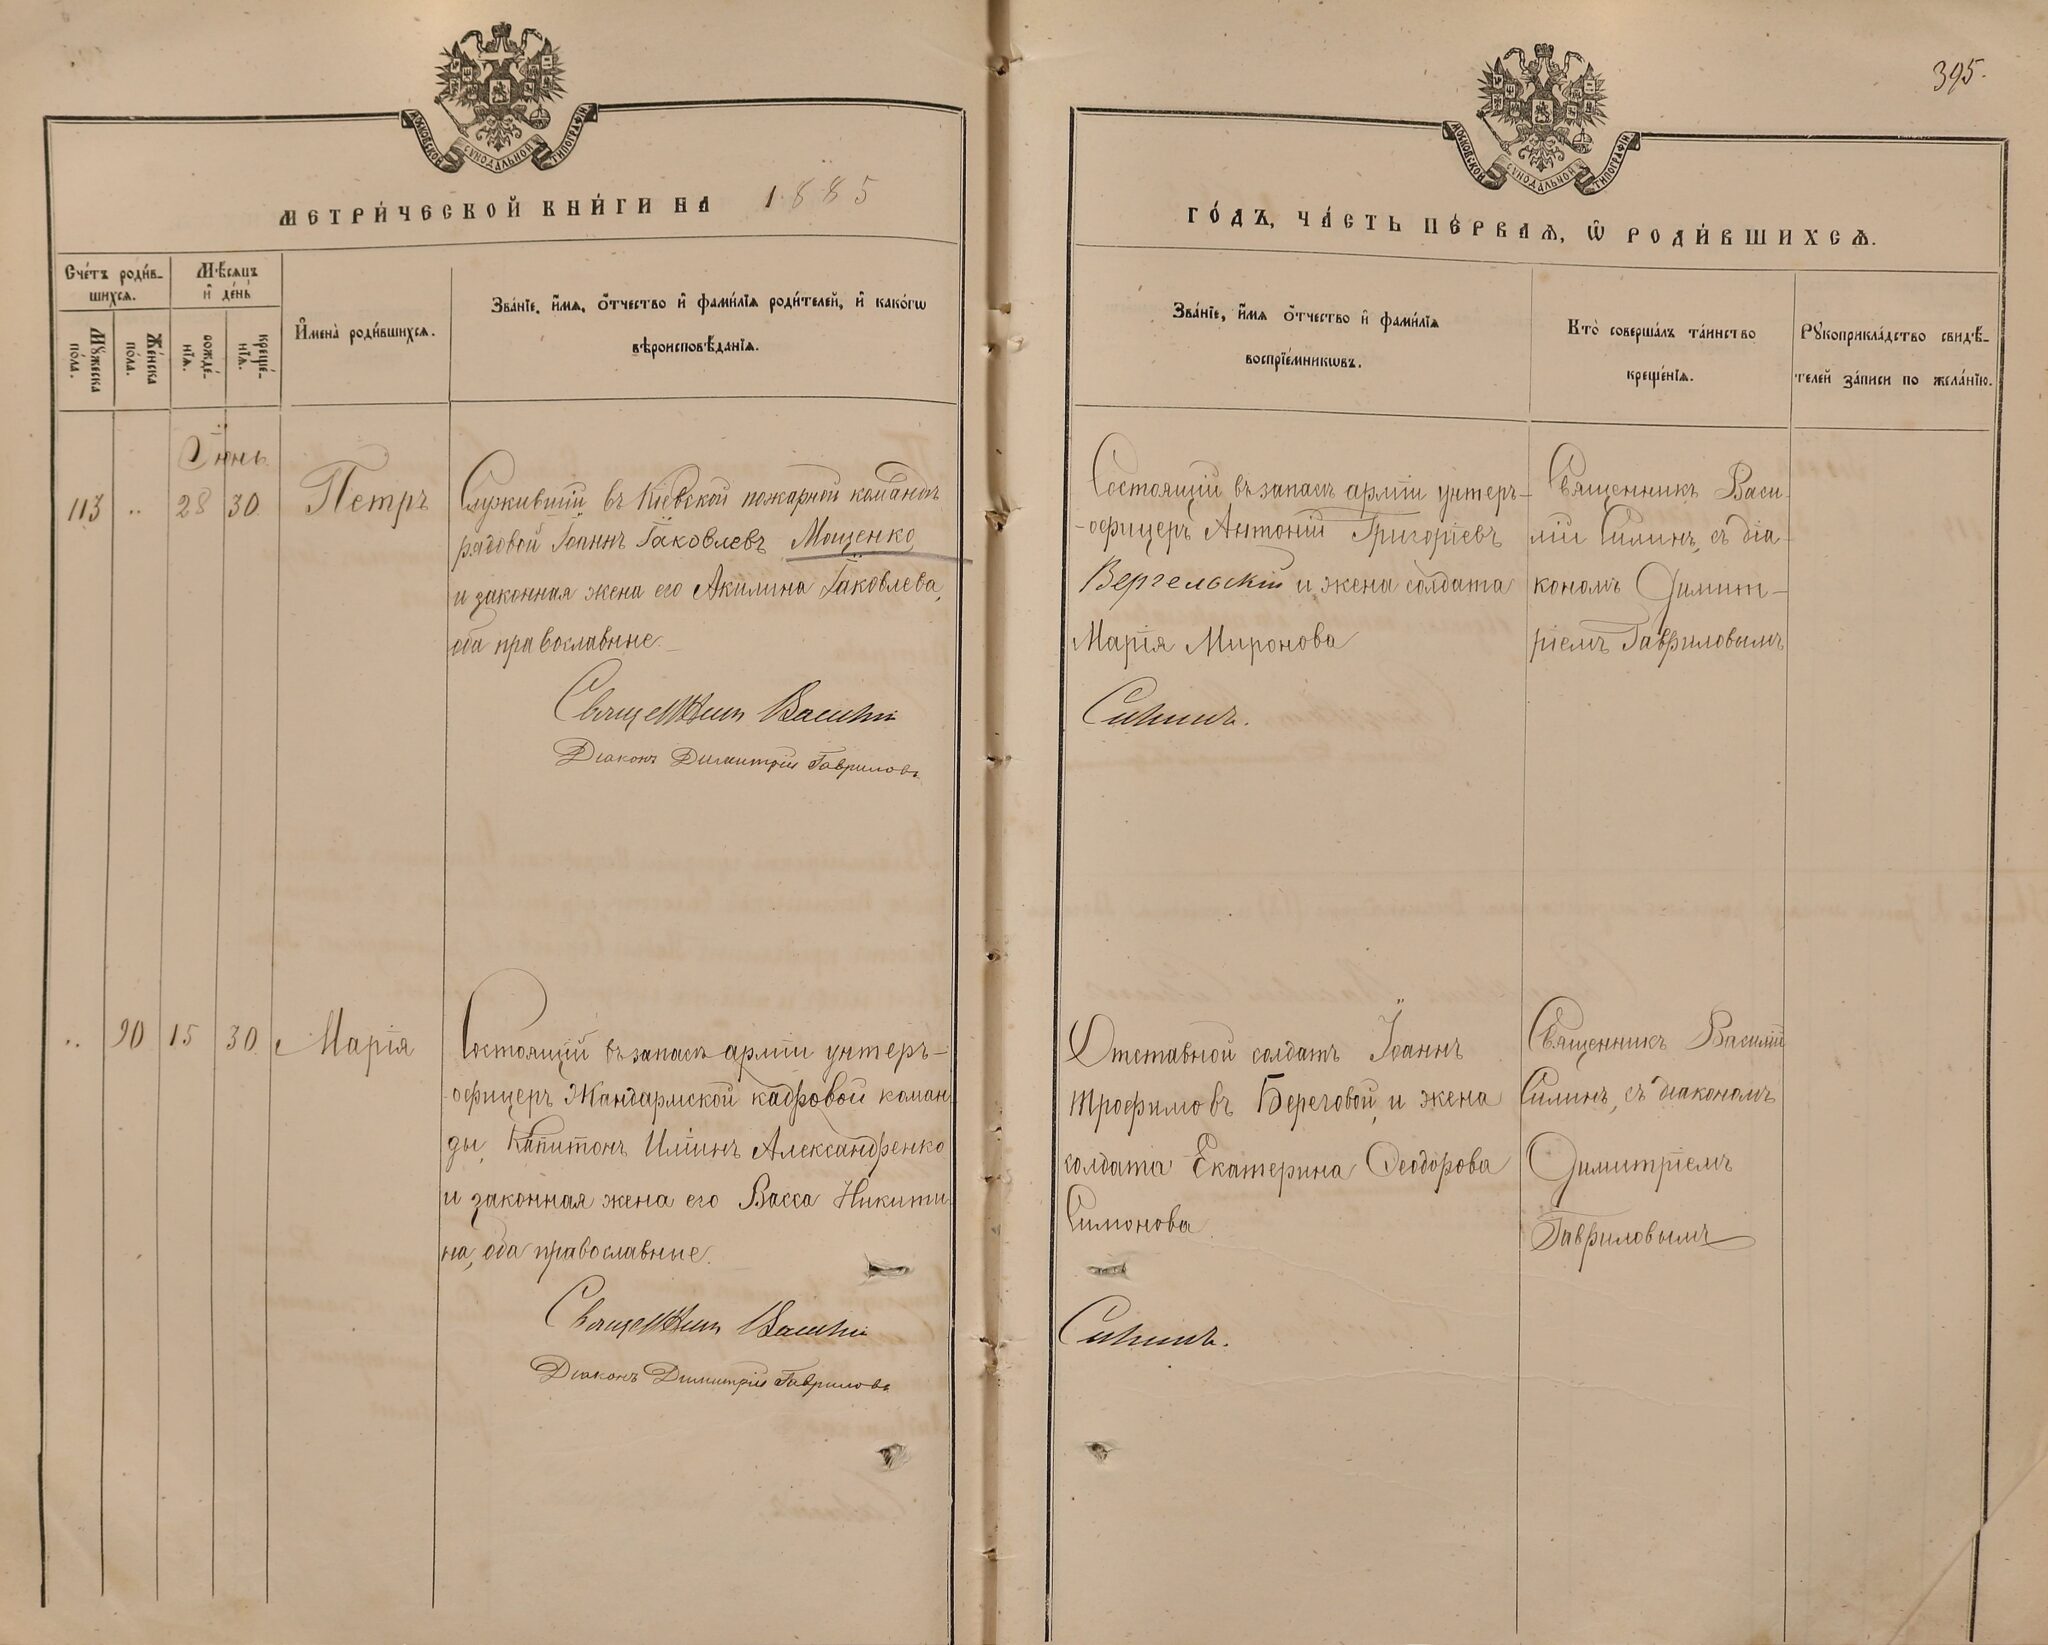 395.
МОСКОВСКОЙ СѴНОДАЛЬНОЙ ТИПОГРАФІИ
МОСКОВСКОЙ СѴНОДАЛЬНОЙ ТИПОГРАФІИ
МЕТРИ́ЧЕСКОЙ КНИ́ГИ НА 1885
ГО́ДЪ, ЧА́СТЬ ПЕ́РВАѦ, Ѿ РОДИ́ВШИХСѦ.
Счéтъ роди́в-
шихсѧ.
Мꙋ́жеска
по́ла.
Же́нска
по́ла.
Мѣ́сѧцъ
и҆ де́нь
рожде́-
нїѧ.
креще́-
нїѧ.
И҆мена̀ роди́вшихсѧ.
Зва́нїе, и҆́мѧ, ѻ҆́тчество и҆ фами́лїѧ роди́телей, и҆ како́гѡ
вѣроисповѣ́данїѧ.
Зва́нїе, и҆́мѧ ѻ҆́тчество и҆ фами́лїѧ
воспрїе́мникѡвъ.
Кто̀ соверша́лъ та́инство
креще́нїѧ.
Рꙋкоприкла́дство свидѣ́-
телей за́писи по жела́нїю.
Іюнь
113 .. 28 30. Петръ
Служившій въ Кіевской пожарной командѣ
рядовой Іоаннъ Іаковлевъ Мощенко
и законная жена его Акилина Іаковлева,
оба православные.
Священникъ Василій
Діаконъ Димитрій Гавриловъ
Состоящій въ запасѣ арміи унтеръ-
-офицеръ Антоній Григоріевъ
Вергельскій и жена солдата
Марія Миронова
Силинъ.
Священникъ Васи-
лій Силинъ, съ діа-
кономъ Димит-
ріемъ Гавриловымъ
.. 90 15 30. Марія
Состоящій въ запасѣ арміи унтеръ-
-офицеръ Жандармской кадровой коман-
ды, Капитонъ Иліинъ Александренко
и законная жена его Васса Никити-
на, оба православные.
Священникъ Василій
Діаконъ Димитрій Гавриловъ
Отставной солдатъ Іоаннъ
Трофимовъ Береговой, и жена
солдата Екатерина Ѳеодорова
Симонова.
Силинъ.
Священникъ Василій
Силинъ, съ діакономъ
Димитріемъ
Гавриловымъ